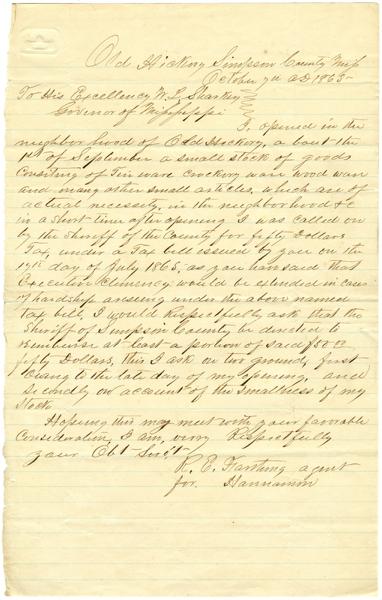 Old Hickory Simpson County Miss
October 7th AD 1865
To His Excellency W L Sharkey
Govenor of Mississippi
I, opened in the
neighborhood of Old Hickory, a bout the
1st of September a small stock of goods
Consisting of Tin ware Crockery ware wood ware
and many other small articles, which are of
actual necessity, in the neighborhood &c
in a short time after opening I was called on
by the Sheriff of the County for fifty Dollars
Tax, under a Tax bill issued by you on the
day of July 1865, as you have said that
Executive Clemency would be extended in cases
of hardship areseing under the above named
tax bill, I would Respectfully ask that the
Sheriff of Simpson County be directed to
Reimburse at least a portion of said $50.00
fifty Dollars, this I ask on two ground, first
Owang to the late day of my opening, and
secondly on account of the smallness of my
Stock
Hopeing this may meet with your favorable
Consideration, I am, very Respectfully
your Obt Servt
R. E. Farthing agent
for Hannamon